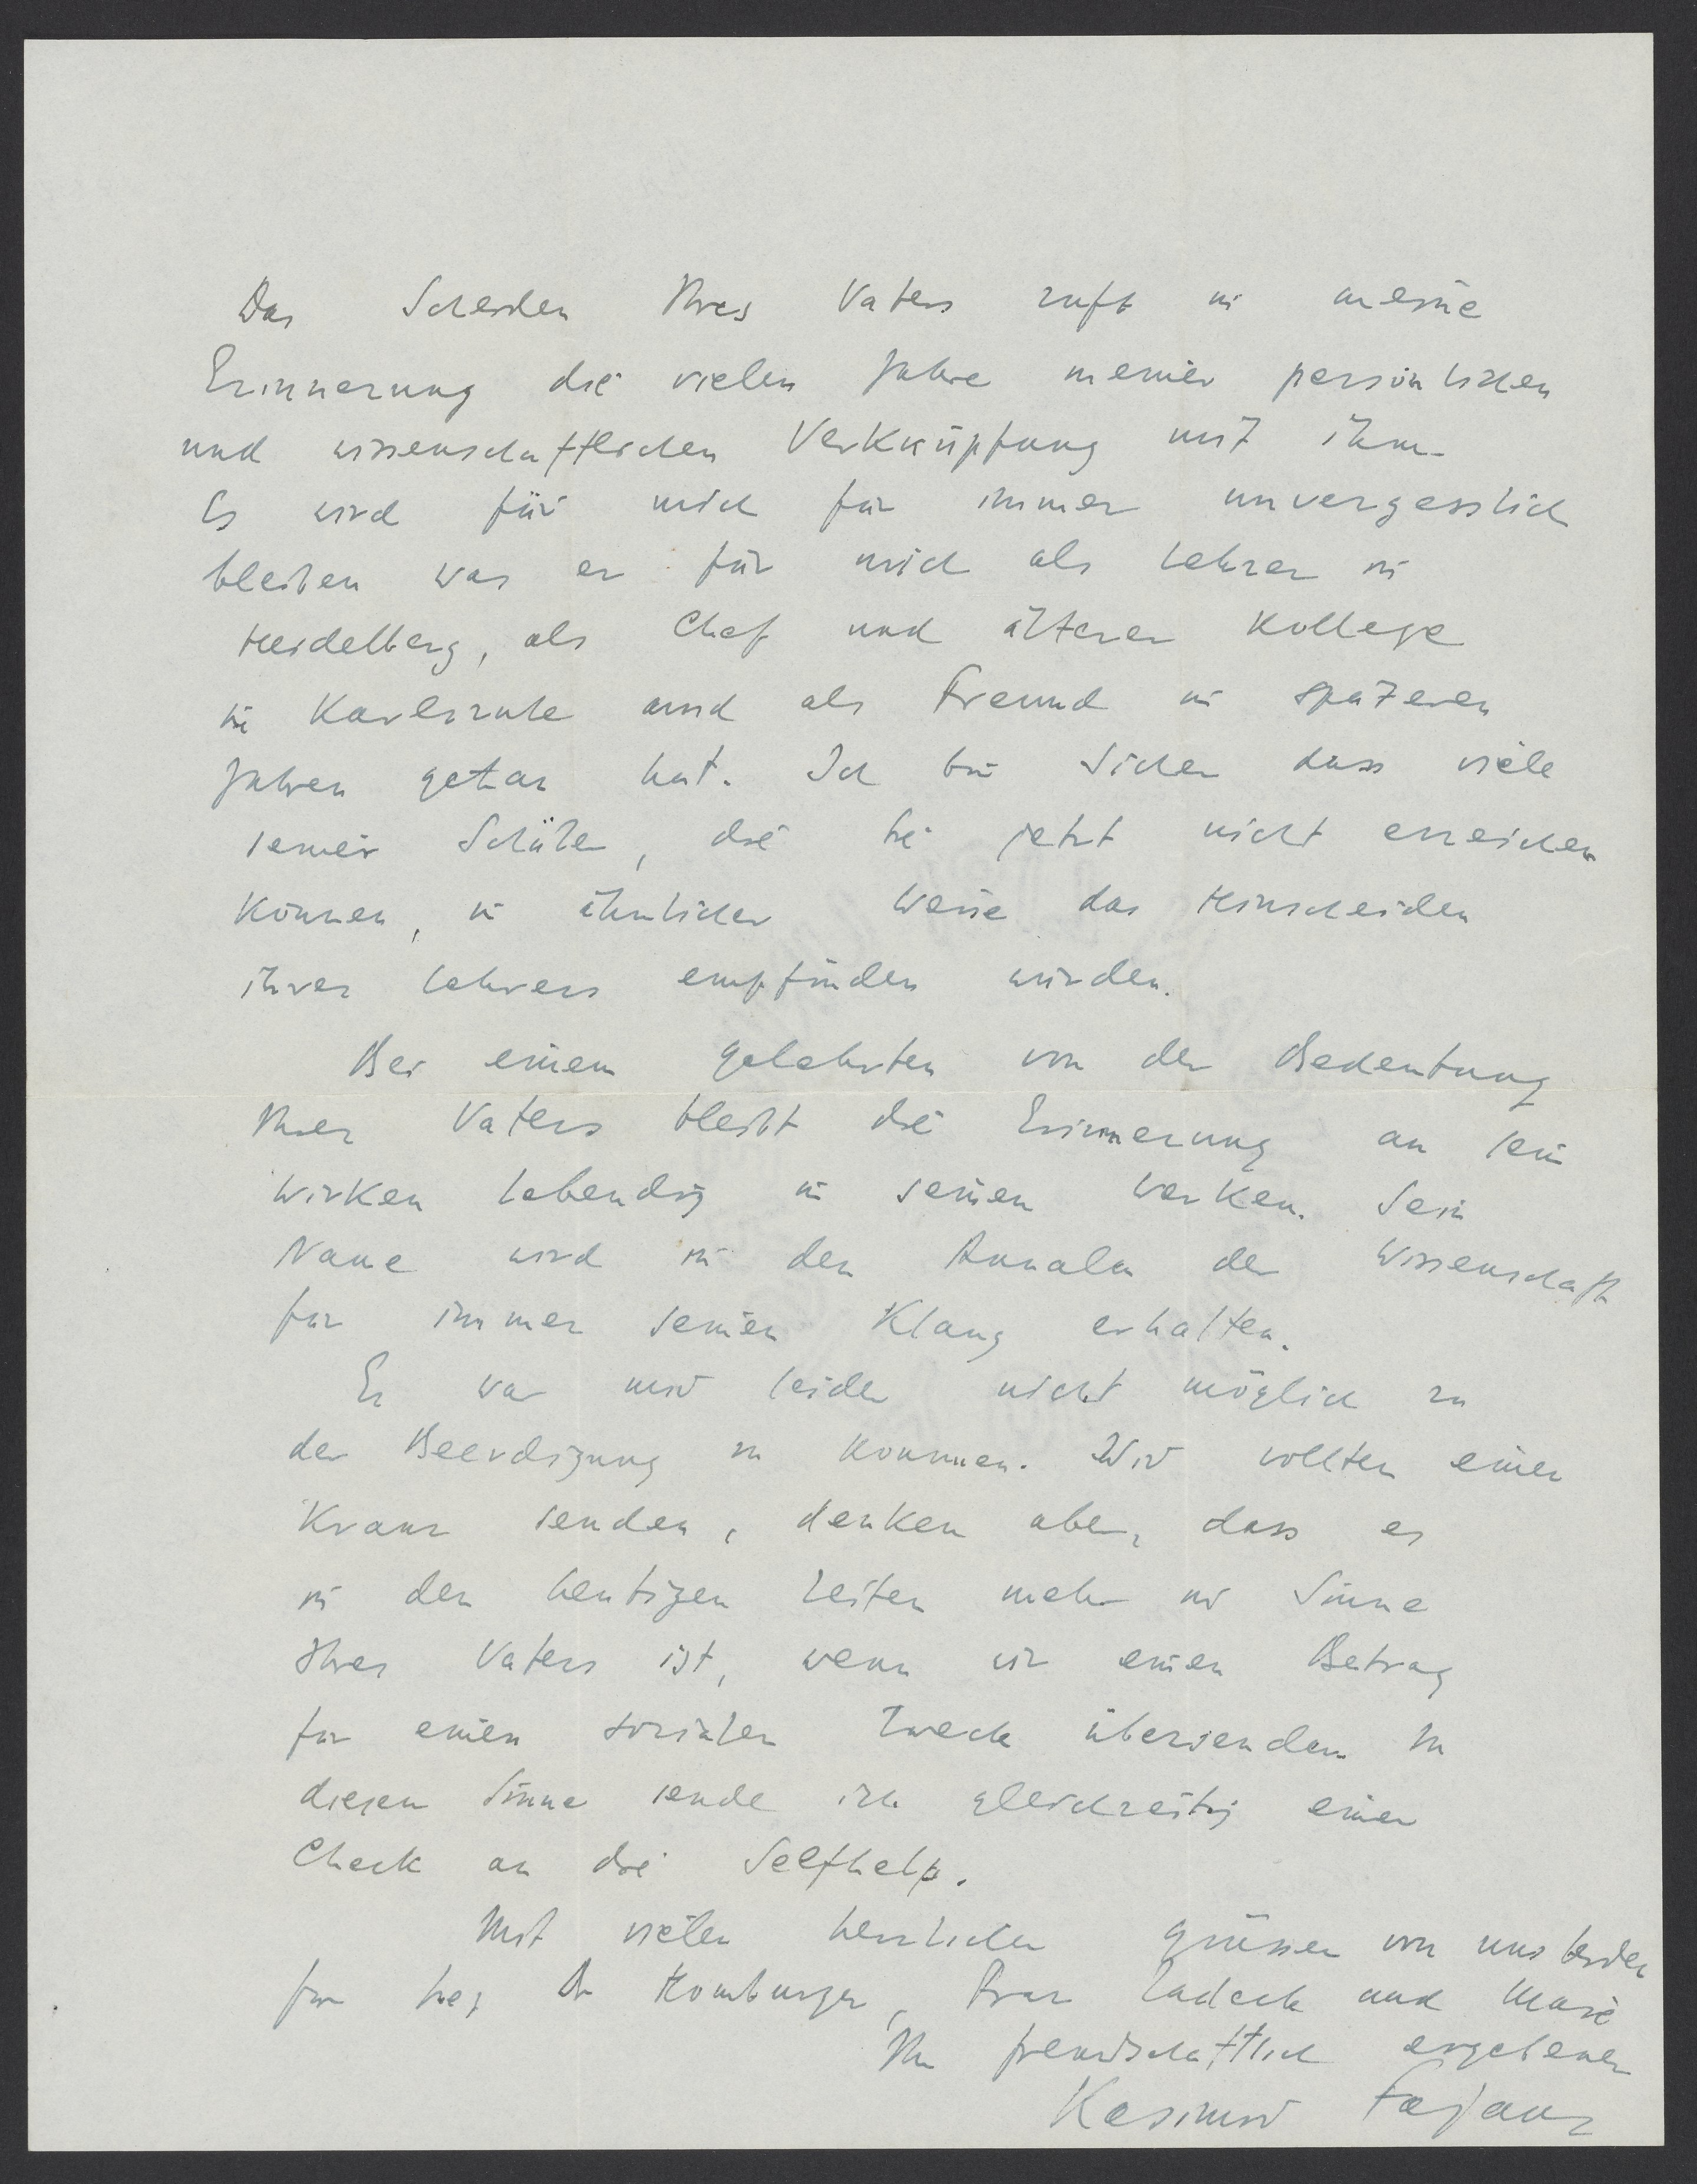 Das Scheiden Ihres Vaters ruft in meine
Erinnerung die vielen Jahre meiner persönlichen
und wissenschaftlichen Verknüpfung mit ihm.
Es wird für mich für immer unvergesslich
bleiben was er für mich als Lehrer in
Heidelberg, als Chef und älterer Kollege
in Karlsruhe und als Freund in späteren
Jahren getan hat. Ich bin sicher dass viele
seiner Schüler, die Sie jetzt nicht erreichen
können, in ähnlicher Weise das Hinscheiden
ihres Lehrers empfinden würden.
Bei einem Gelehrten von der Bedeutung
Ihres Vaters bleibt die Erinnerung an sein
Wirken lebendig in seinen Werken. Sein
Name wird in den Annalen der Wissenschaft
für immer seinen Klang erhalten.
Es war mir leider nicht möglich zu
der Beerdigung zu kommen. Wir wollten einen
Kranz senden, denken aber, dass es
in den heutigen Zeiten mehr im Sinne
Ihres Vaters ist, wenn wir einen Betrag
für einen sozialen Zweck übersenden. In
diesem Sinne sende ich gleichzeitig einen
Check an die Selfhelp.
Mit vielen herzlichen Grüssen von uns beiden
für Sie, Dr Homburger, Frau Ladeck und Marie
Ihr freundschaftlich ergebener
Kasimir Fajans